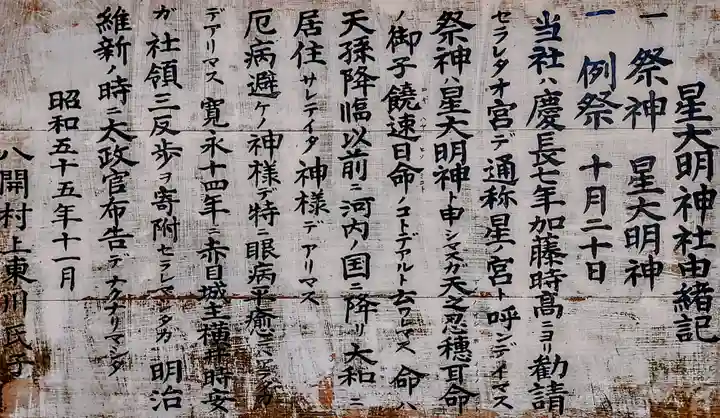 星大明神社由緒記
一 祭神 星大明神
一 例祭 十月二十日
当社ハ慶長七年加藤時高ニヨリ勧請
セラレタオ宮デ通称星ノ宮ト呼ンデイマス
祭神ハ星大明神ト申シマスガ天之忍穂耳命
ノ御子饒速日命ノコトデアルト云ワレマス 命ハ
天孫降臨以前ニ河内ノ国ニ降リ大和ニ
居住サレテイタ神様デアリマス
厄病避ケノ神様デ特ニ眼病平癒ニ
デアリマス 寛永十四年ニ赤目城主横井時安
ガ社領三反歩ヲ寄附セラレマシタガ 明治
維新ノ時ニ太政官布告デナクナリマシタ
昭和五十五年十一月
八開村上東川氏子